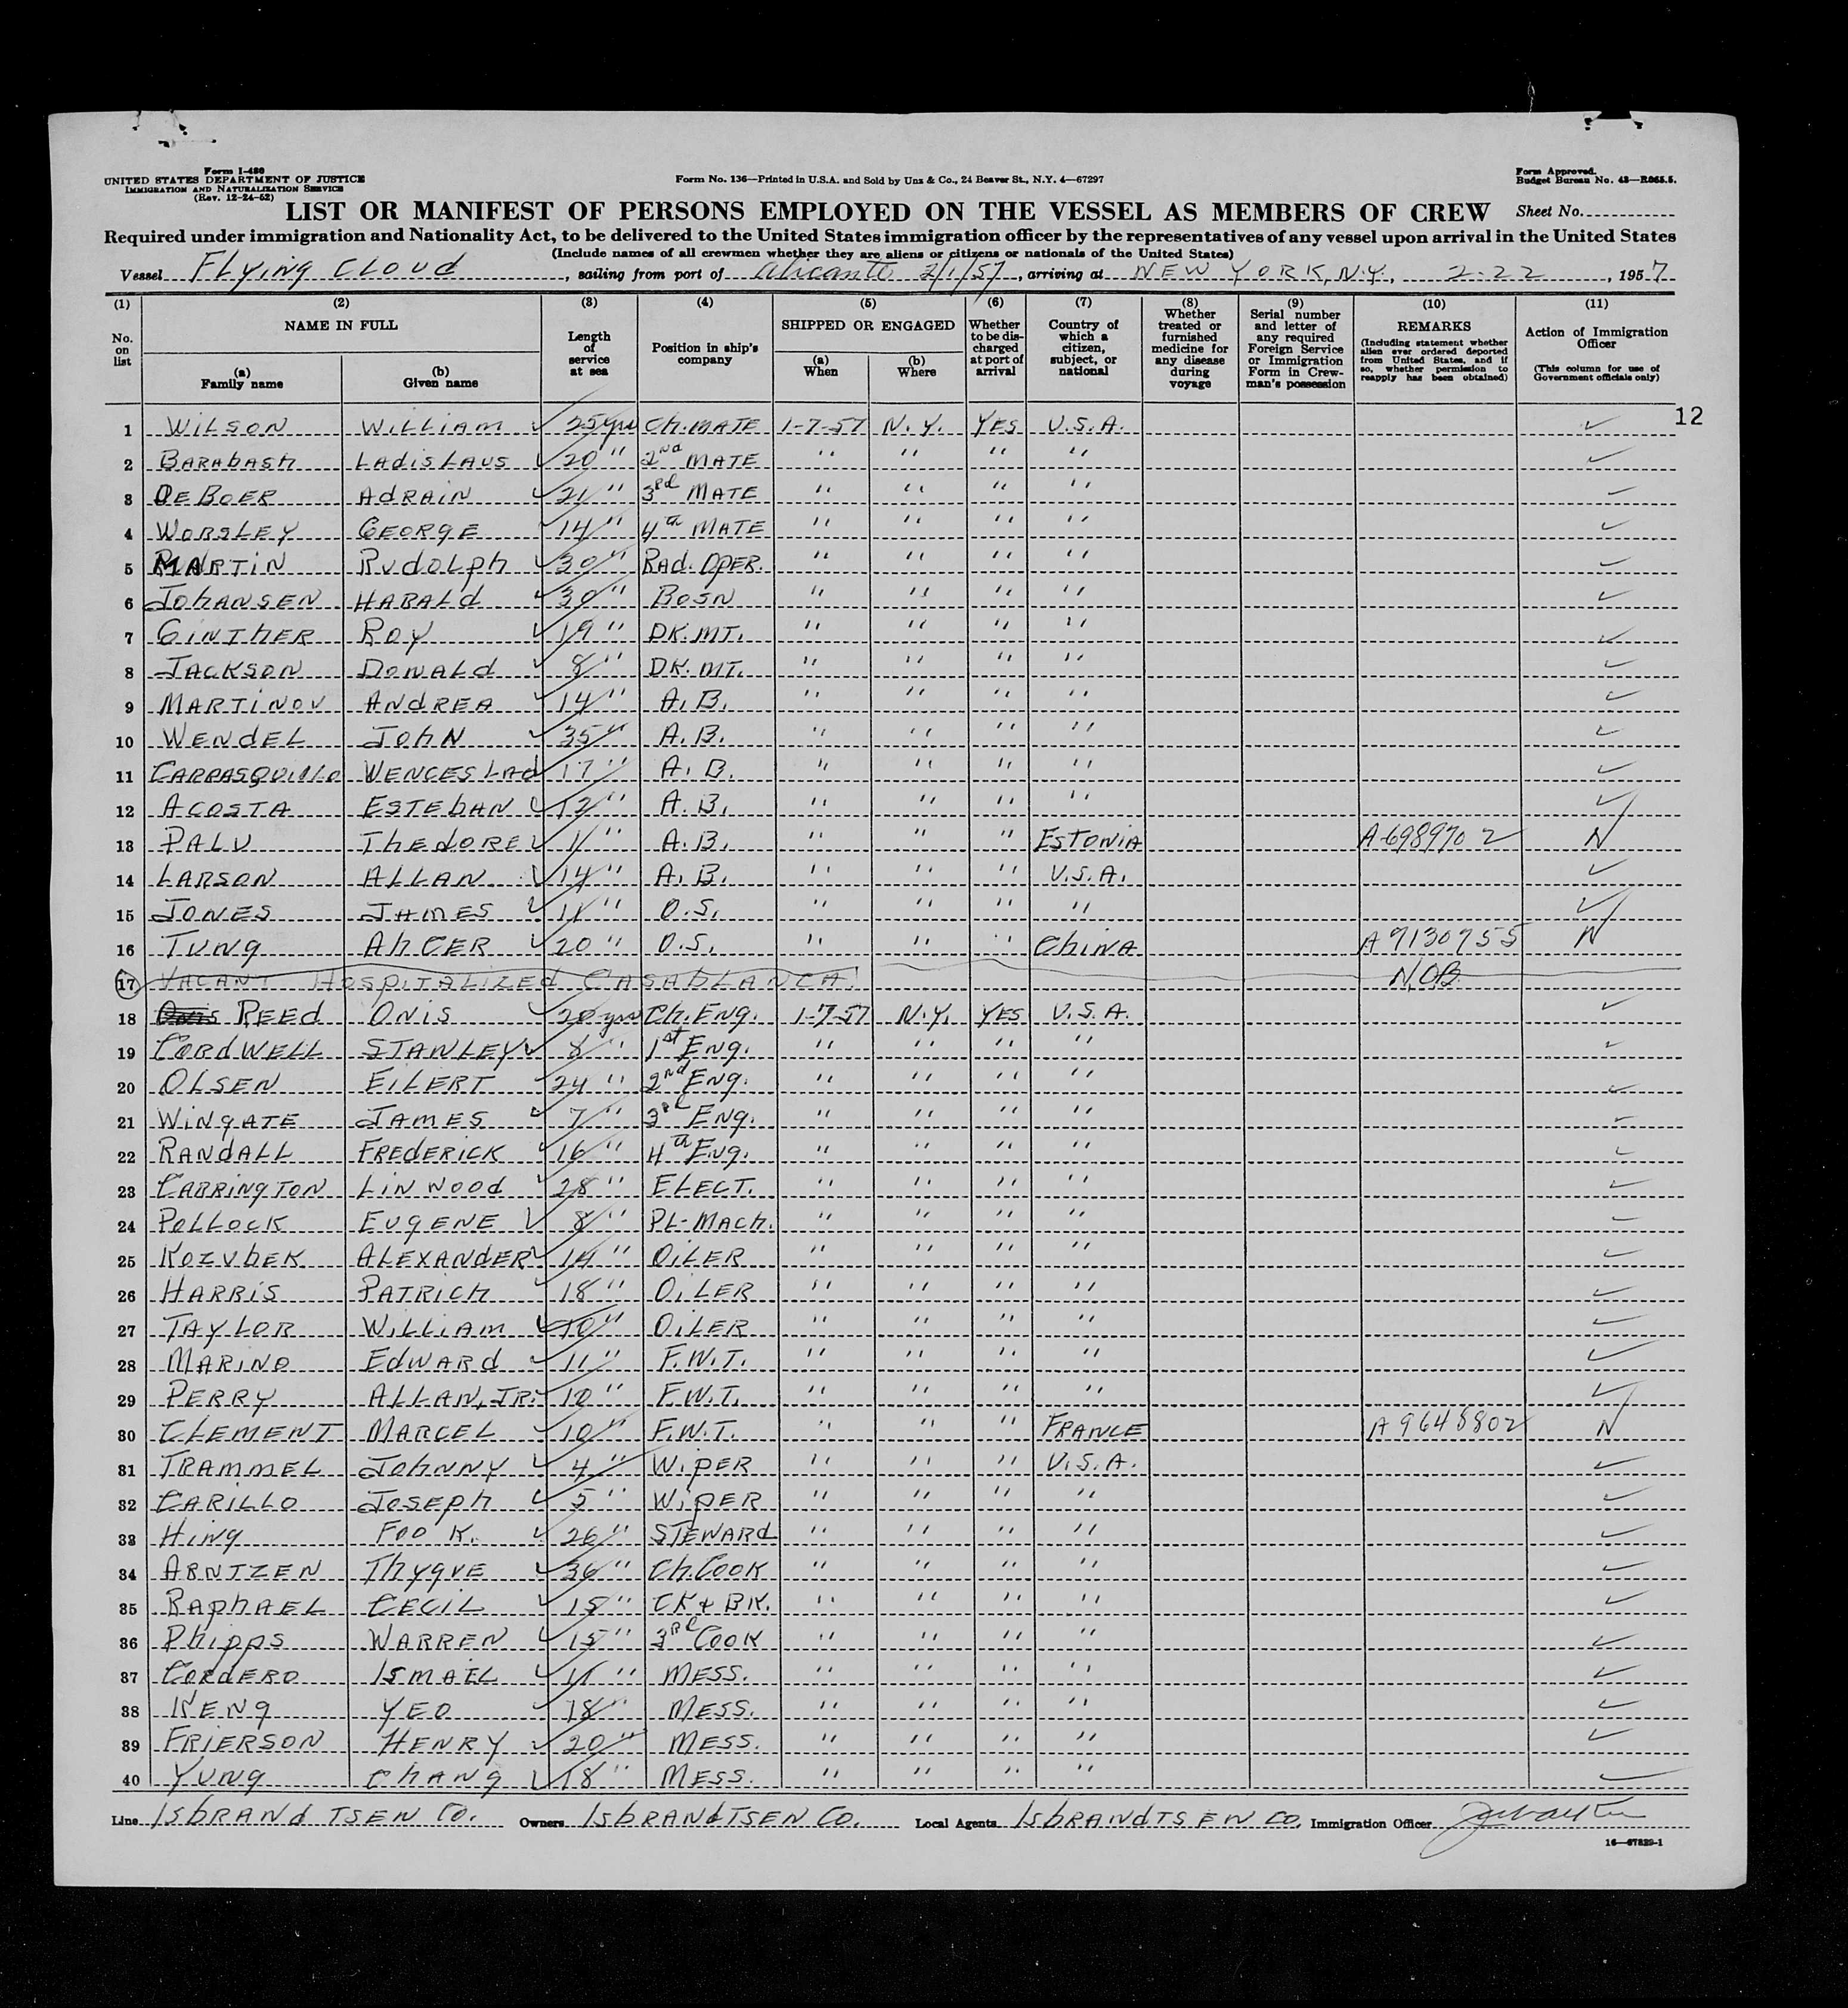 Form I-480
UNITED STATES DEPARTMENT OF JUSTICE
IMMIGRATION AND NATURALIZATION SERVICE
(Rev. 12-24-52)
Form No. 136—Printed in U.S.A. and Sold by Unz & Co., 24 Beaver St., N.Y. 4—67297
Form Approved.
Budget Bureau No. 43—R065.5.
LIST OR MANIFEST OF PERSONS EMPLOYED ON THE VESSEL AS MEMBERS OF CREW Sheet No.
Required under immigration and Nationality Act, to be delivered to the United States immigration officer by the representatives of any vessel upon arrival in the United States
(Include names of all crewmen whether they are aliens or citizens or nationals of the United States)
Vessel FLYING CLOUD, sailing from port of Alicante 2/1/57, arriving at NEW YORK, N.Y., 2-22, 1957
(1) (2) (3) (4) (5) (6) (7) (8) (9) (10) (11)
No. on list
NAME IN FULL
(a) Family name
(b) Given name
Length of service at sea
Position in ship's company
SHIPPED OR ENGAGED
(a) When
(b) Where
Whether to be discharged at port of arrival
Country of which a citizen, subject, or national
Whether treated or furnished medicine for any disease during voyage
Serial number and letter of any required Foreign Service or Immigration Form in Crewman's possession
REMARKS
(Including statement whether alien ever ordered deported from United States, and if so, whether permission to reapply has been obtained)
Action of Immigration Officer
(This column for use of Government officials only)
12
1 WILSON WILLIAM 25 yrs CH. MATE 1-7-57 N.Y. YES U.S.A.
2 BARABASH LADISLAUS 20 " 2nd MATE " " " "
3 DEBOER ADRAIN 21 " 3rd MATE " " " "
4 WORSLEY GEORGE 14 " 4th MATE " " " "
5 MARTIN RUDOLPH 30 " RAD. OPER. " " " "
6 JOHANSEN HARALD 30 " BOSN " " " "
7 GINTHER ROY 19 " DK. MT. " " " "
8 JACKSON DONALD 8 " DK. MT. " " " "
9 MARTINOV ANDREA 14 " A.B. " " " "
10 WENDEL JOHN 35 " A.B. " " " "
11 CARRASQUILLO WENCESLAO 17 " A.B. " " " "
12 ACOSTA ESTEBAN 12 " A.B. " " " "
13 PALU THEDORE 11 " A.B. " " " ESTONIA A-6989702 N
14 LARSON ALLAN 14 " A.B. " " " U.S.A.
15 JONES JAMES 11 " O.S. " " " "
16 TUNG AH CER 20 " O.S. " " " CHINA A 9130955 N
17 VACANT HOSPITALIZED CASABLANCA! N.O.B.
18 Onis REED ONIS 20 yrs CH. ENG. 1-7-57 N.Y. YES U.S.A.
19 CORDWELL STANLEY 8 " 1st ENG. " " " "
20 OLSEN EILERT 24 " 2nd ENG. " " " "
21 WINGATE JAMES 7 " 3rd ENG. " " " "
22 RANDALL FREDERICK 16 " 4th ENG. " " " "
23 CARRINGTON LINWOOD 28 " ELECT. " " " "
24 POLLOCK EUGENE 8 " PL-MACH. " " " "
25 KOZUBEK ALEXANDER 14 " OILER " " " "
26 HARRIS PATRICK 18 " OILER " " " "
27 TAYLOR WILLIAM 10 " OILER " " " "
28 MARINO EDWARD 11 " F.W.T. " " " "
29 PERRY ALLAN, JR. 10 " F.W.T. " " " "
30 CLEMENT MARCEL 10 " F.W.T. " " " FRANCE A 9648802 N
31 TRAMMEL JOHNNY 4 " WIPER " " " U.S.A.
32 CARILLO JOSEPH 5 " WIPER " " " "
33 HING FOO K. 26 " STEWARD " " " "
34 ARNTZEN THYGVE 36 " CH. COOK " " " "
35 RAPHAEL CECIL 15 " CK & BK. " " " "
36 PHIPPS WARREN 15 " 3rd COOK " " " "
37 CORDERO ISMAEL 11 " MESS. " " " "
38 KENG YEO 18 " MESS. " " " "
39 FRIERSON HENRY 20 " MESS. " " " "
40 YUNG CHANG 18 " MESS. " " " "
Line ISBRANDTSEN CO. Owners ISBRANDTSEN CO. Local Agents ISBRANDTSEN CO. Immigration Officer
16—67829-1